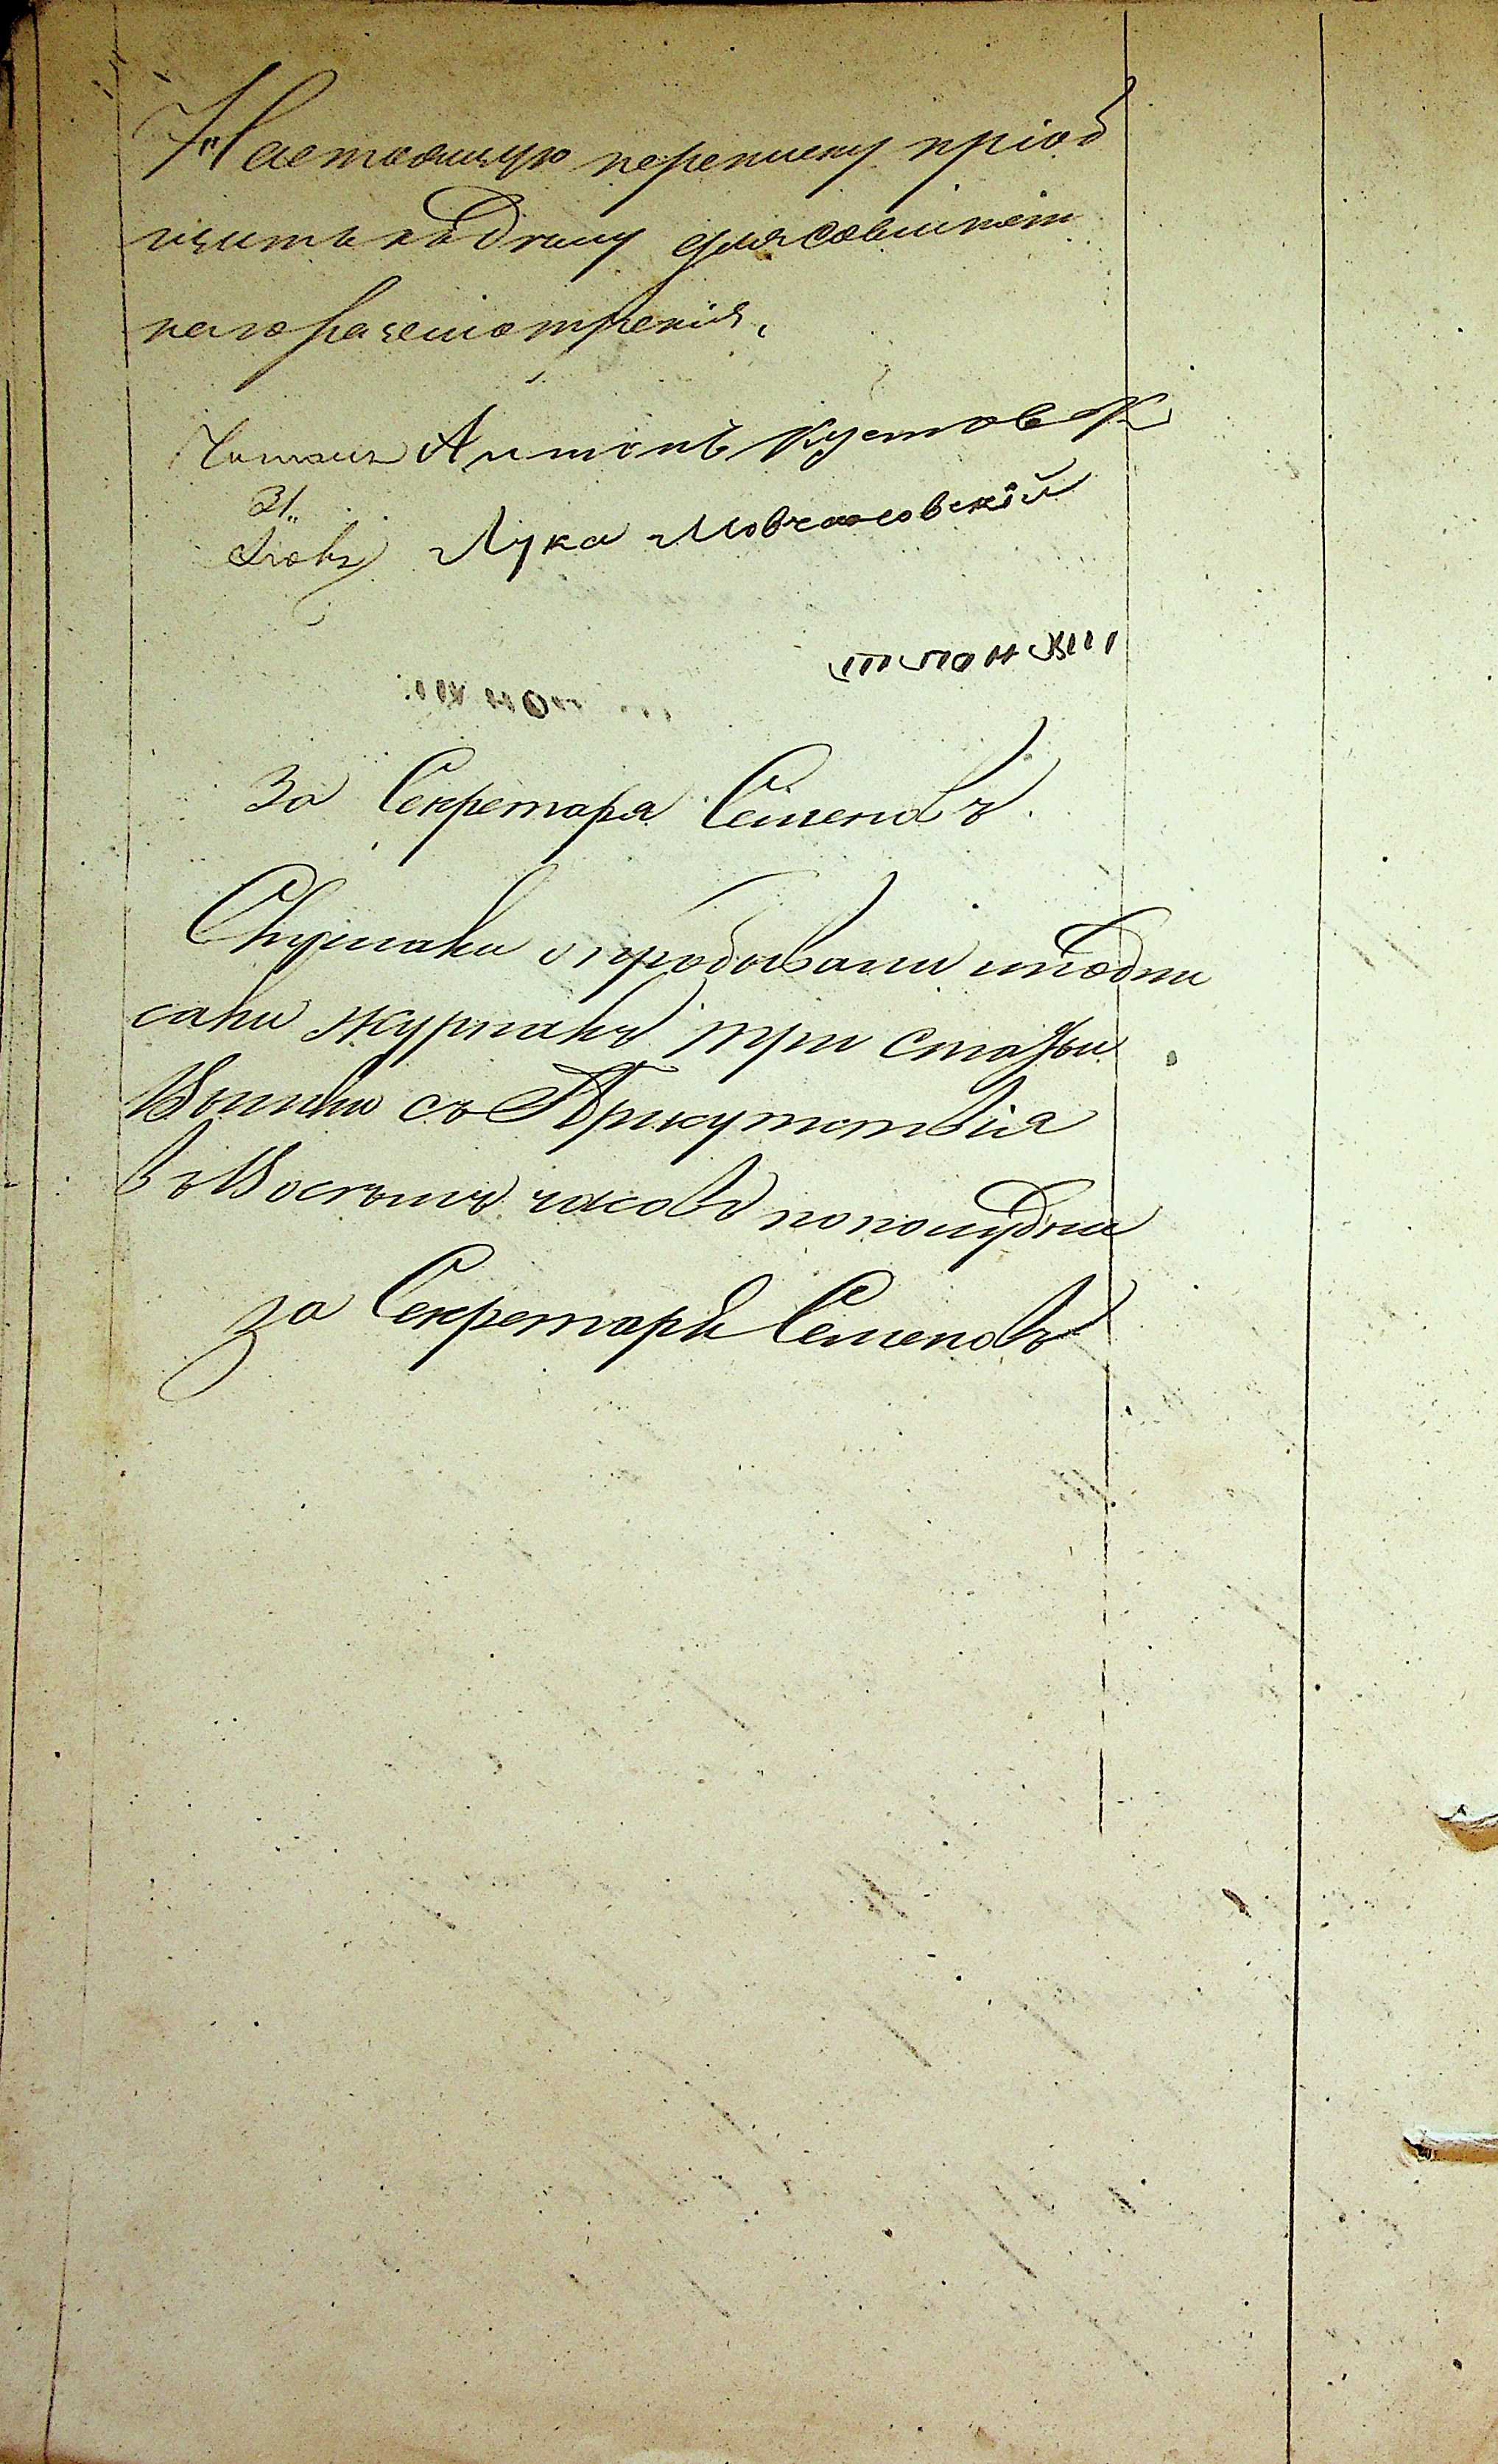 Настоящую переписку пріоб
щить къ дѣлу для совмѣст
наго разсмотренія.
Читалъ Антонъ Кустовск
31
Яковъ Лука Мовчановскій
За Секретаря Семеновъ.
Слушали и пробовали и подпи
сали журналъ три статьи
Вышли съ Присутствія
въ Восемь часовъ пополудни
за Секретаря Семеновъ